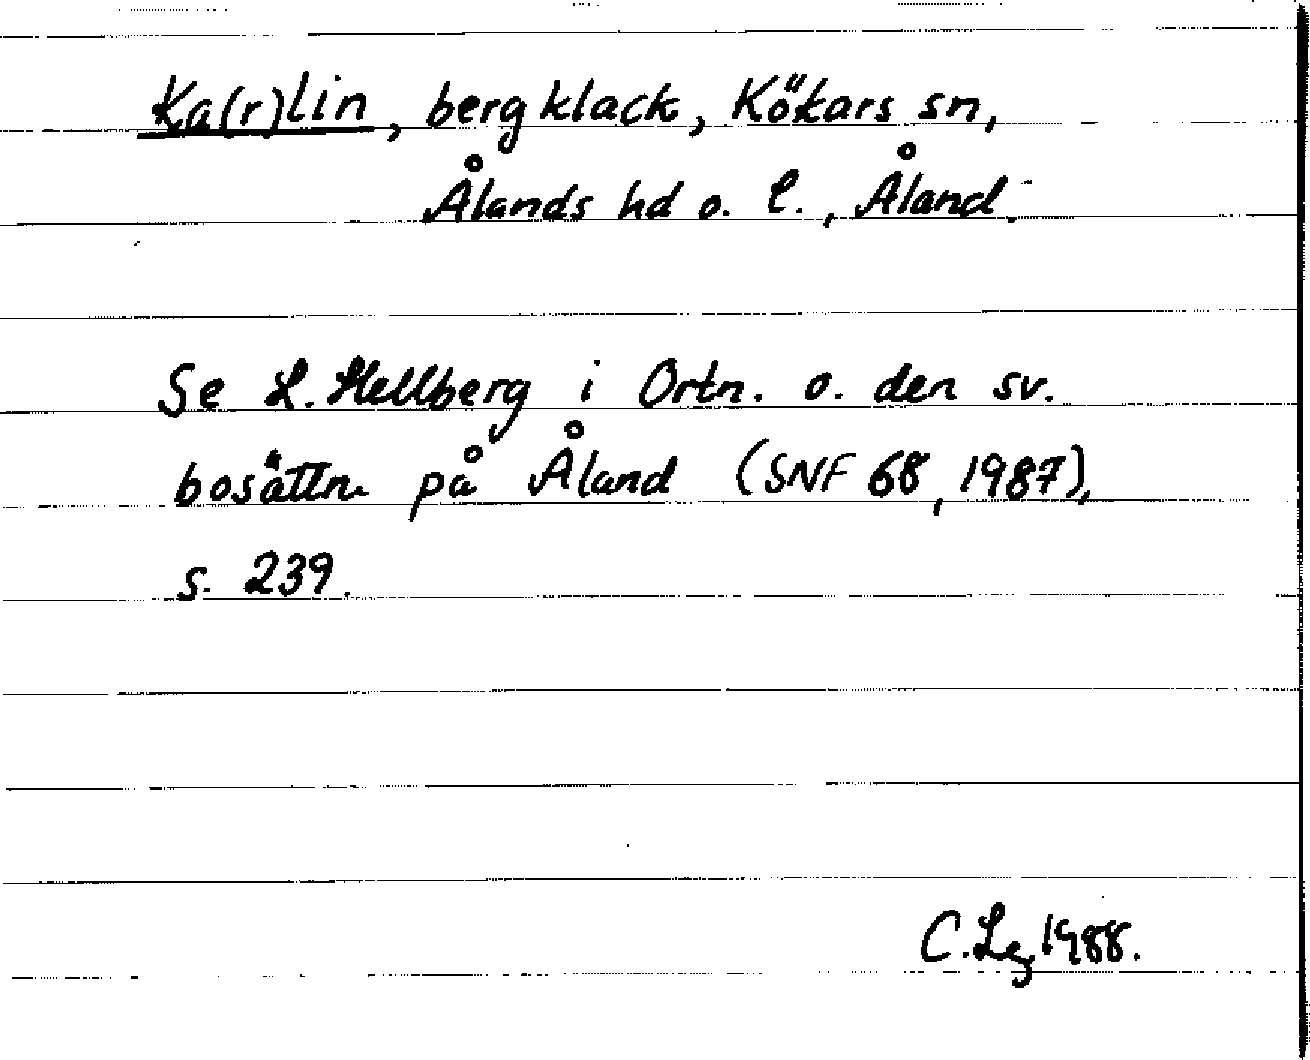 Ka(r)lin, bergklack, Kökars sn,
Ålands hd o. l., Åland.
Se L. Hellberg i Ortn. o. den sv.
bosättn. på Åland (SNF 68, 1987),
s. 239.
C. Lg 1988.